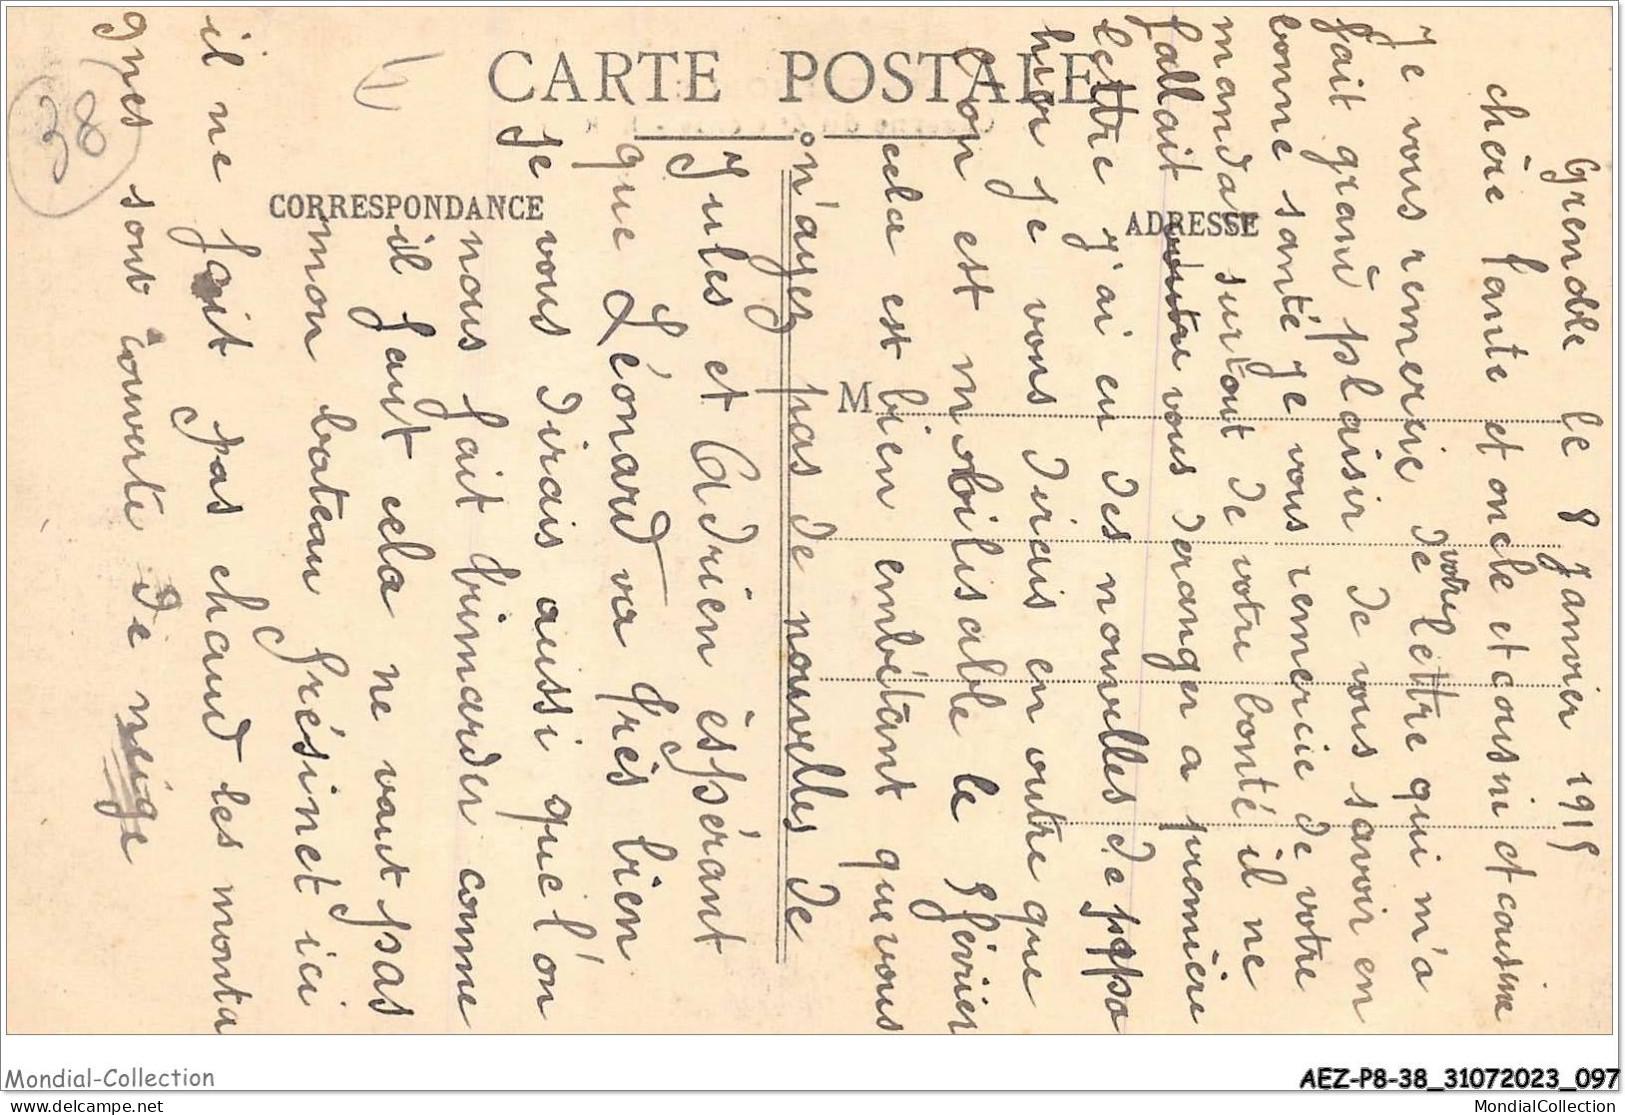 CARTE POSTALE
CORRESPONDANCE
ADRESSE
M
38
Grenoble le 8 Janvier 1915
chère tante et oncle et cousin et cousine
Je vous remercie de votre lettre qui m'a
fait grand plaisir de vous savoir en
bonne santé je vous remercie de votre
mandat surtout de votre bonté il ne
fallait vous deranger a première
lettre j'ai eu des nouvelles de papa
hier je vous dirais en outre que
l'on est mobilisable le 9 février
cela est bien embêtant que vous
n'ayez pas de nouvelles de
Jules et Adrien èspérant
que Léonard va très bien
je vous dirais aussi que l'on
nous fait trimarder comme
il faut cela ne vaut pas
mon bateau frésinet ici
il ne fait pas chaud les monta
gnes sont couverte de neige
Mondial-Collection
www.delcampe.net/store/mondialcollection
AEZ-P8-38_31072023_097
MondialCollection